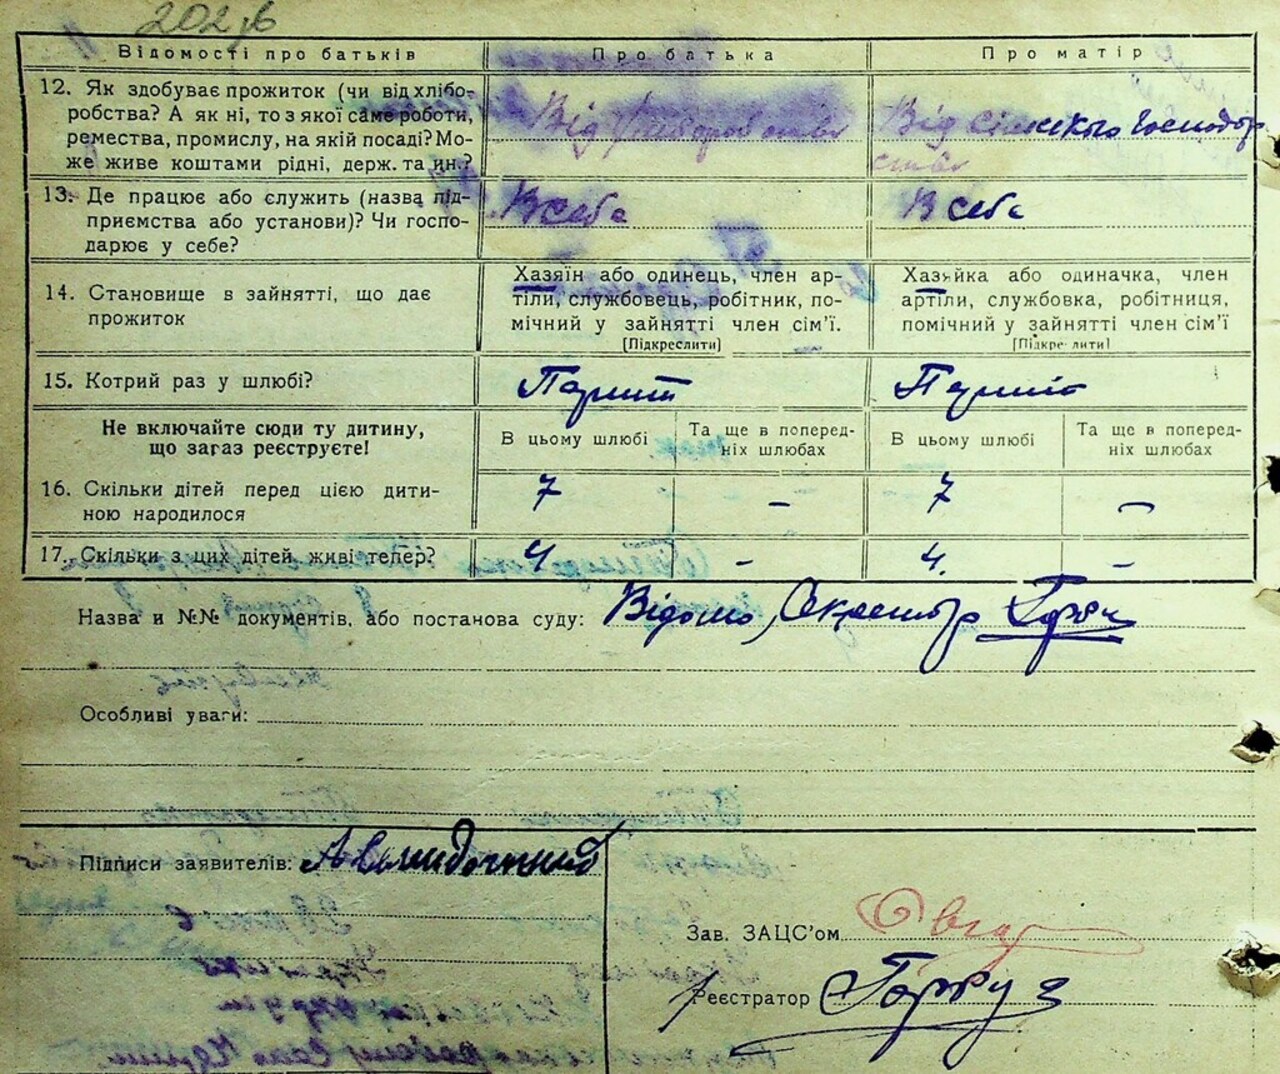 202
Відомості про батьків Про батька Про матір
12. Як здобуває прожиток (чи від хлібо-
робства? А як ні, то з якої саме роботи,
ремества, промислу, на якій посаді? Мо-
же живе коштами рідні, держ. та ин.?
Від хліборобства
Від сільского господар
ства
13. Де працює або служить (назва під-
приємства або установи)? Чи госпо-
дарює у себе?
В себе
В себе
14. Становище в зайнятті, що дає
прожиток
Хазяїн або одинець, член ар-
тіли, службовець, робітник, по-
мічний у зайнятті член сім'ї.
[Підкреслити]
Хазяйка або одиначка, член
артіли, службовка, робітниця,
помічний у зайнятті член сім'ї
[Підкреслити]
15. Котрий раз у шлюбі?
Перший
Перший
Не включайте сюди ту дитину,
що загаз реєструєте!
В цьому шлюбі
Та ще в поперед-
ніх шлюбах
В цьому шлюбі
Та ще в поперед-
ніх шлюбах
16. Скільки дітей перед цією дити-
ною народилося
7 – 7 –
17. Скільки з цих дітей живі тепер?
4 - 4. -
Назва и №№ документів, або постанова суду: Відомо, Секретар
Особливі уваги:
Підписи заявителів:
Зав. ЗАЦС'ом
Реєстратор